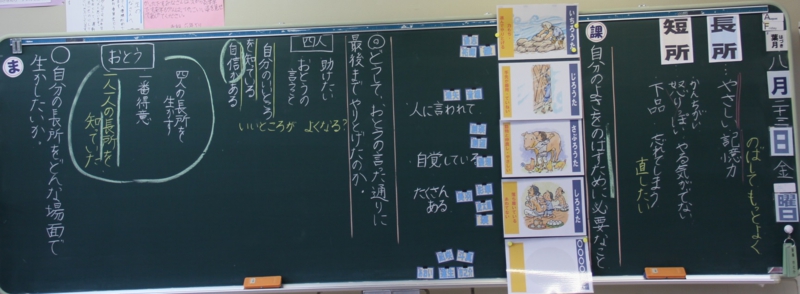 八月二十三日金曜日
長所
…やさしい記憶力
のばしてもっとよく
短所
かんちがい
怒りっぽい やる気がでない
下品 忘れてしまう
直したい
課
自分のよさをのばすために必要なこと
いちろうた
じろうた
さぶろうた
しろうた
○○○○
人に言われて
自覚している
たくさん
ある
◎どうして、おとうの言った通りに
最後までやりとげたのか。
四人
助けたい
おとうの
言うこと
自分のいいところ
を知っている
自信がある
いいところが よくなる?
おとう
四人の長所を
生かす
一番得意
一人一人の長所を
知っていた
ま
○自分の長所をどんな場面で
生かしたいか。